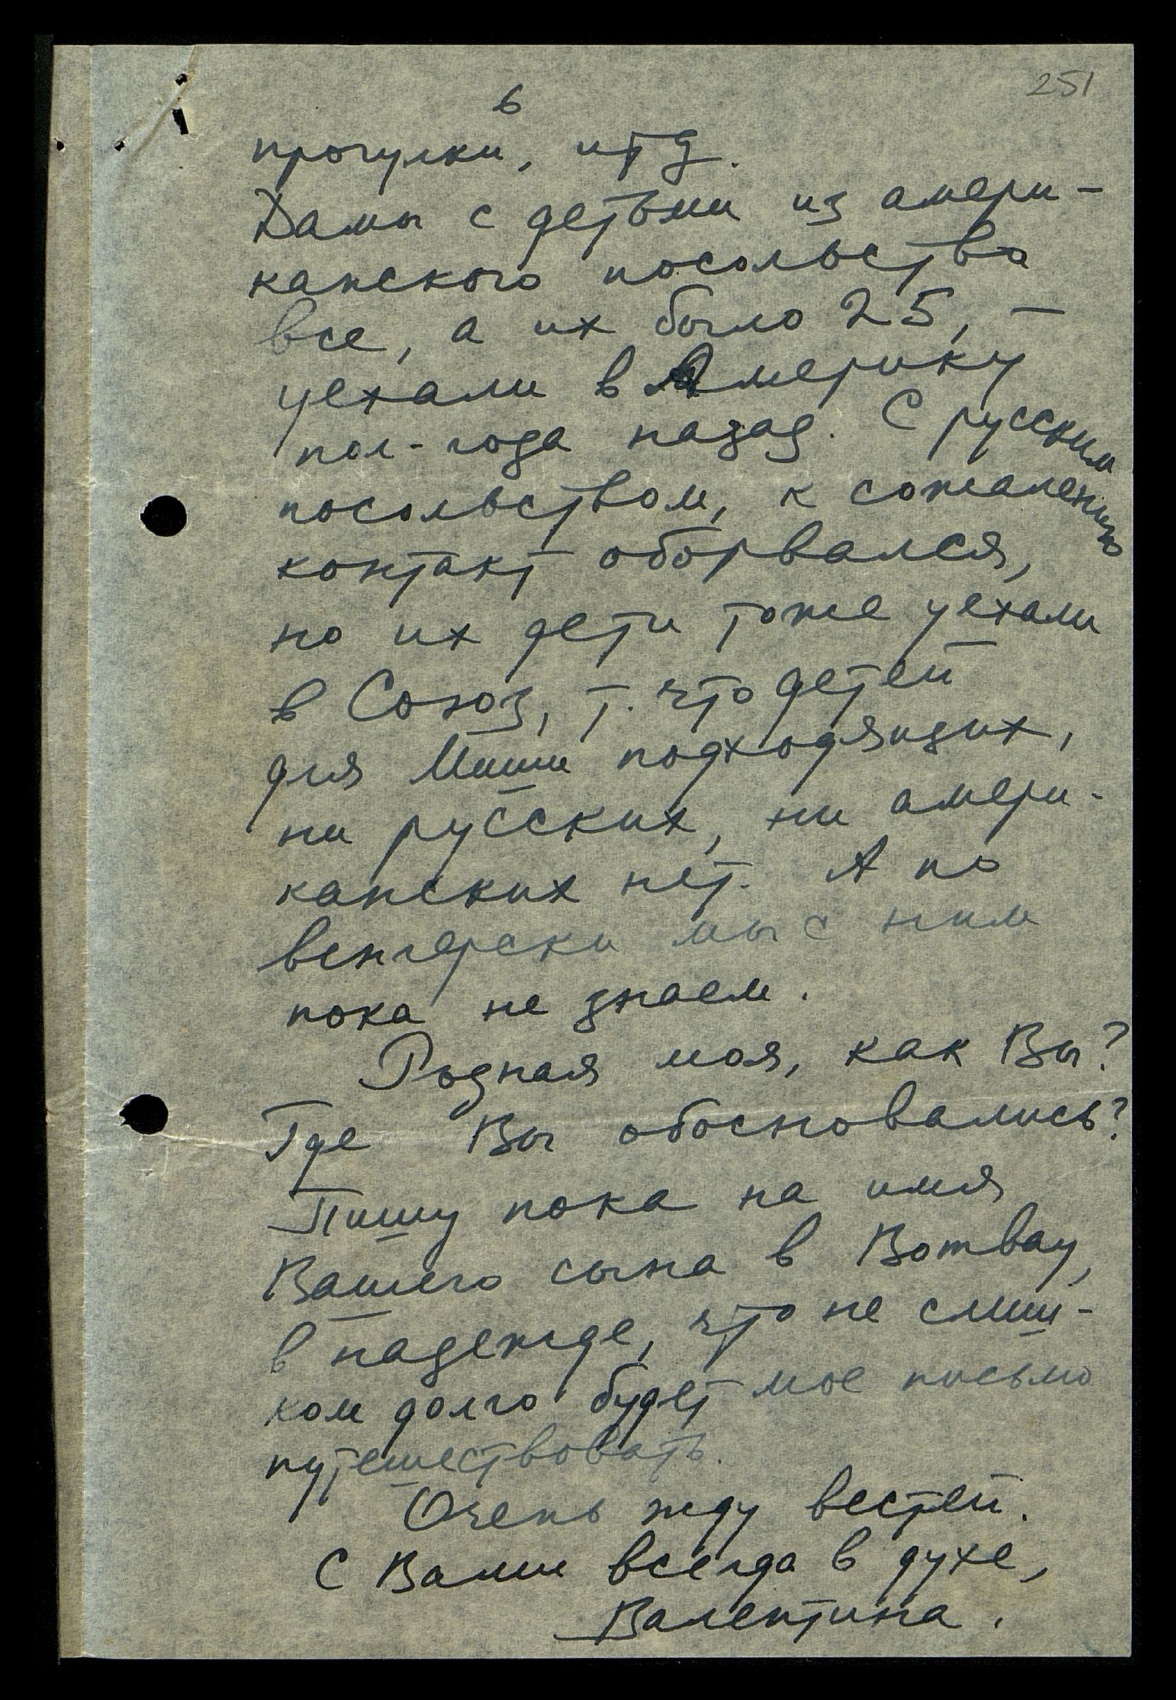 251
6
прогулки, итд.
Дамы с детьми из амери-
канского посольства
все, а их было 25, –
уехали в Америку
пол-года назад. С русским
посольством, к сожалению
контакт оборвался,
но их дети тоже уехали
в Союз, т. что детей
для Миши подходящих,
ни русских, ни амери-
канских нет. А по
венгерски мы с ним
пока не знаем.
Родная моя, как Вы?
Где Вы обосновались?
Пишу пока на имя
Вашего сына в Bombay,
в надежде, что не слиш-
ком долго будет мое письмо
путешествовать.
Очень жду вестей.
С Вами всегда в духе,
Валентина.